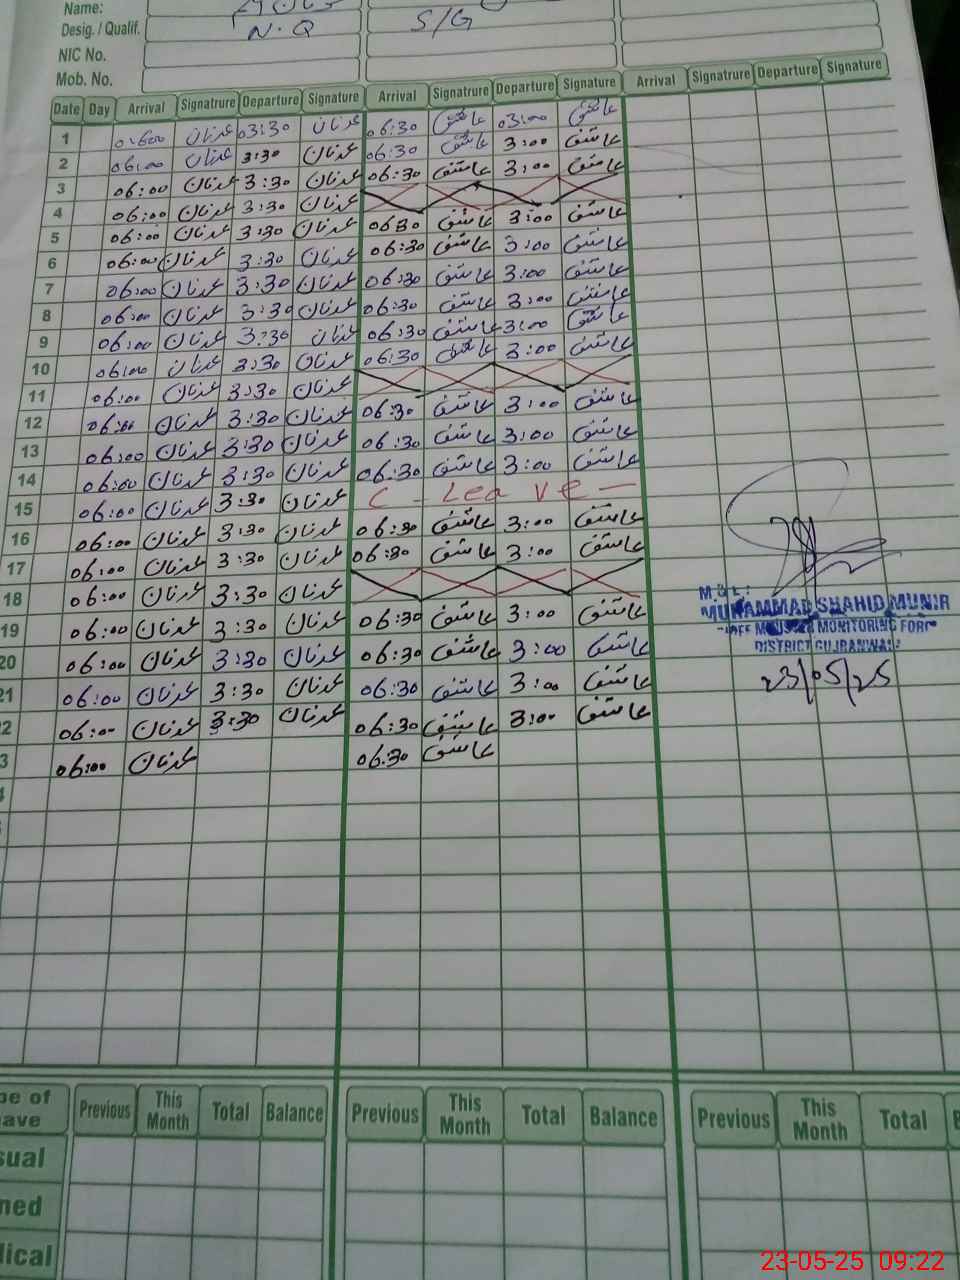 Name:
Desig. / Qualif. N.Q S/G
NIC No.
Mob. No.
Date Day Arrival Signatrure Departure Signature Arrival Signatrure Departure Signature Arrival Signatrure Departure Signature
1 06:00 عدنان 03:30 عدنان 06:30 عاشق 03:00 عاشق
2 06:00 عدنان 3:30 عدنان 06:30 عاشق 3:00 عاشق
3 06:00 عدنان 3:30 عدنان 06:30 عاشق 3:00 عاشق
4 06:00 عدنان 3:30 عدنان
5 06:00 عدنان 3:30 عدنان 0630 عاشق 3:00 عاشق
6 06:00 عدنان 3:30 عدنان 06:30 عاشق 3:00 عاشق
7 06:00 عدنان 3:30 عدنان 06:30 عاشق 3:00 عاشق
8 06:00 عدنان 3:30 عدنان 06:30 عاشق 3:00 عاشق
9 06:00 عدنان 3:30 عدنان 06:30 عاشق 3:00 عاشق
10 06:00 عدنان 3:30 عدنان 06:30 عاشق 3:00 عاشق
11 06:00 عدنان 3:30 عدنان
12 06:00 عدنان 3:30 عدنان 06:30 عاشق 3:00 عاشق
13 06:00 عدنان 3:30 عدنان 06:30 عاشق 3:00 عاشق
14 06:00 عدنان 3:30 عدنان 06:30 عاشق 3:00 عاشق
15 06:00 عدنان 3:30 عدنان C - Leave -
16 06:00 عدنان 3:30 عدنان 06:30 عاشق 3:00 عاشق
17 06:00 عدنان 3:30 عدنان 06:30 عاشق 3:00 عاشق
18 06:00 عدنان 3:30 عدنان
19 06:00 عدنان 3:30 عدنان 06:30 عاشق 3:00 عاشق
20 06:00 عدنان 3:30 عدنان 06:30 عاشق 3:00 عاشق
21 06:00 عدنان 3:30 عدنان 06:30 عاشق 3:00 عاشق
22 06:00 عدنان 3:30 عدنان 06:30 عاشق 3:00 عاشق
3 06:00 عدنان 06.30 عاشق
MUHAMMAD SHAHID MUNIR
MONITORING FORC
DISTRICT GUJRANWALA
23/05/25
pe of eave Previous This Month Total Balance Previous This Month Total Balance Previous This Month Total B
sual
ned
dical
23-05-25 09:22